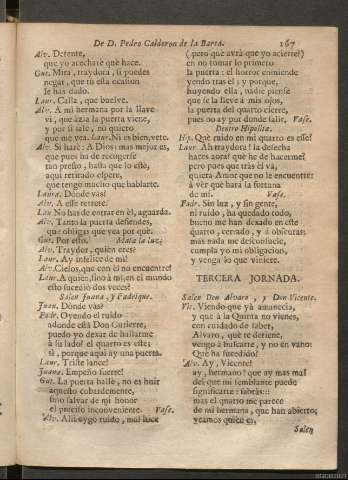 De D. Pedro Calderon de la Barca. 167
Alv. Detente,
que yo acecharè què hace.
Gut. Mira, traydora, si puedes
negar, que tù esta ocasion
le has dado.
Laur. Calla, que buelve.
Alv. A mi hermana por la llave
vì, que àzia la puerta viene,
y por si sale, no quiero
que me vea. Laur. Ni es bien, vete.
Alv. Si harè: A Dios: mas mejor es,
que pues ha de recogerse
tan presto, hasta que lo estè,
aqui retirado espere,
que tengo mucho que hablarte.
Laur. Dònde vàs?
Alv. A esse retrete.
Lau. No has de entrar en èl, aguarda.
Alv. Tanto la puerta defiendes,
que obligas que vea por què.
Gut. Por esto. Mata la luz.
Alv. Traydor, quièn eres?
Laur. Ay infelice de mi!
Alv. Cielos, que con èl no encuentre!
Laur. A quièn, sino à mi, en el mundo
esto sucediò dos veces?
Salen Juana, y Fadrique.
Juan. Dònde vàs?
Fadr. Oyendo el ruido
adonde està Don Gutierre,
puedo yo dexar de hallarme
à su lado? el quarto es este;
sì, porque aqui ay una puerta.
Laur. Triste lance!
Juana. Empeño fuerte!
Gut. La puerta hallè, no es huir
aquesto cobardemente,
sino salvar de mi honor
el preciso inconveniente. Vase.
Alv. Alli oygo ruido, mal hace
(pero què avrà que yo acierte?)
en no tomar lo primero
la puerta: el horror enmiende
yendo tras èl; y porque,
huyendo ella, nadie piense
que se la llevè à mis ojos,
la puerta del quarto cierre,
pues no ay por donde salir. Vase.
Dentro Hipolita.
Hip. Què ruido en mi quarto es esse?
Laur. Ah traydora! la desecha
haces aora? què he de hacerme?
pero pues que tràs èl và,
quiera Amor que no le encuentre:
à vèr què harà la fortuna
de mi. Vase.
Fadr. Sin luz, y sin gente,
ni ruido, ha quedado todo,
bueno me han dexado en este
quarto, cerrado, y à obscuras:
mas nada me desconsuele,
cumpla yo mi obligacion,
y venga lo que viniere.
TERCERA JORNADA.
Salen Don Alvaro, y Don Vicente.
Vic. Viendo que yà amanecia,
y que à la Quinta no vienes,
con cuidado de saber,
Alvaro, què te detiene,
vengo à buscarte, y no en vano:
Què ha sucedido?
Alv. Ay, Vicente!
ay, hermano! que ay mas mal
del que mi semblante puede
significarte: sabràs::-
mas el quarto me parece
de mi hermana, que han abierto;
veamos quièn es.
Salen